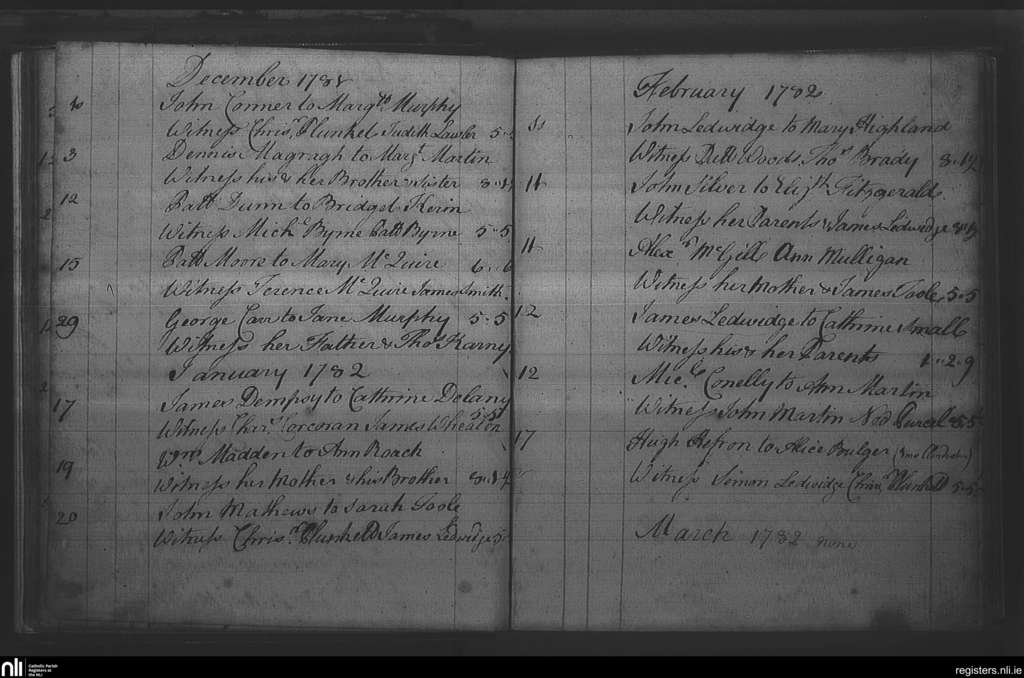 December 1781
John Conner to Margtt Murphy
Witness Chrisr Plunket Judith Lawler 5-5
3 Dennis Magragh to Margt Martin
Witness his & her Brother & Sister 8-1
12 Patt Dunn to Bridget
Witness Michl Byrne Patt Byrne 5-5
15 Patt Moore to Mary McQuire 6-6
Witness Terence McQuire James Smith
29 George Carr to Jane Murphy 5-5
Witness her Father & Thos Karny
January 1782
17 James Dempsy to Cathrine Dolany
5-5
Witness Chrisr Corcoran James Wheaten
Wm Madden to Ann Roach
19 Witness her Mother & his Brother 8-1
20 John Mathews to Sarah Toole
Witness Chrisr Plunket & James Ledwidge 5-
February 1782
John Ledwidge to Mary Highland
Witness Woods Thos Brady 8-1
11 John Silver to Elizth Fitzgerald
Witness her Parents & James Ledwidge
11 Alexr McGill Ann Mulligan
Witness her Mother & James Toole 5-5
12 James Ledwidge to Cathrine Small
Witness his & her Parents 1-2-9
12 Micl Conelly to Ann Martin
Witness John Martin Ned Purcel 5-5
17 Hugh Hefron to Alice Boulger
Witness Simon Ledwidge Chrisr Plunkett 5-5
March 1782 none
nli
Catholic Parish
Registers at
the NLI
registers.nli.ie